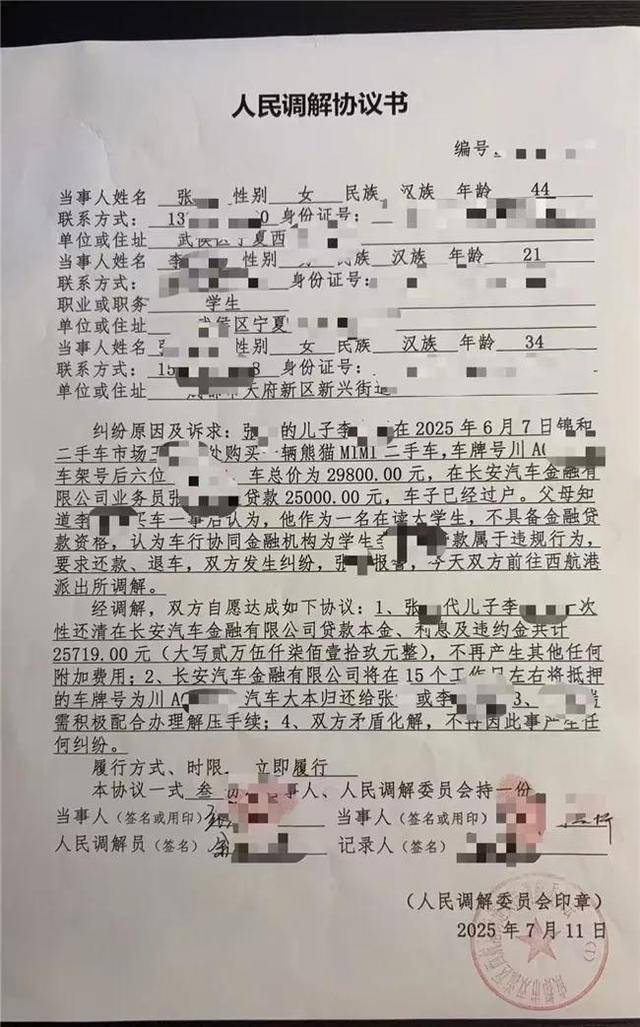 人民调解协议书
编号
当事人姓名 张 性别 女 民族 汉族 年龄 44
联系方式: 13 0 身份证号:
单位或住址 武侯区宁夏西
当事人姓名 李 性别 民族 汉族 年龄 21
联系方式: 身份证号:
职业或职务 学生
单位或住址 武侯区宁夏
当事人姓名 张 性别 女 民族 汉族 年龄 34
联系方式: 15 8 身份证号:
单位或住址 成都市天府新区新兴街道
纠纷原因及诉求:张 的儿子李 在 2025 年 6 月 7 日锦和
二手车市场三 处购买一辆熊猫 MIMI 二手车,车牌号川 A
车架号后六位 车总价为 29800.00 元,在长安汽车金融有
限公司业务员张 贷款 25000.00 元,车子已经过户。父母知
道李 买车一事后认为,他作为一名在读大学生,不具备金融贷
款资格,认为车行协同金融机构为学生李 贷款属于违规行为,
要求还款、退车,双方发生纠纷,张 报警,今天双方前往西航港
派出所调解。
经调解,双方自愿达成如下协议:1、张 代儿子李 一次
性还清在长安汽车金融有限公司贷款本金、利息及违约金共计
25719.00 元(大写贰万伍仟柒佰壹拾玖元整),不再产生其他任何
附加费用;2、长安汽车金融有限公司将在 15 个工作日左右将抵押
的车牌号为川 A 汽车大本归还给张 或李 3、
需积极配合办理解压手续;4、双方矛盾化解,不再因此事产生任
何纠纷。
履行方式、时限 立即履行
本协议一式 叁 份, 事人、人民调解委员会持一份
当事人(签名或用印) 当事人(签名或用印)
人民调解员(签名) 记录人(签名)
(人民调解委员会印章)
2025 年 7 月 11 日